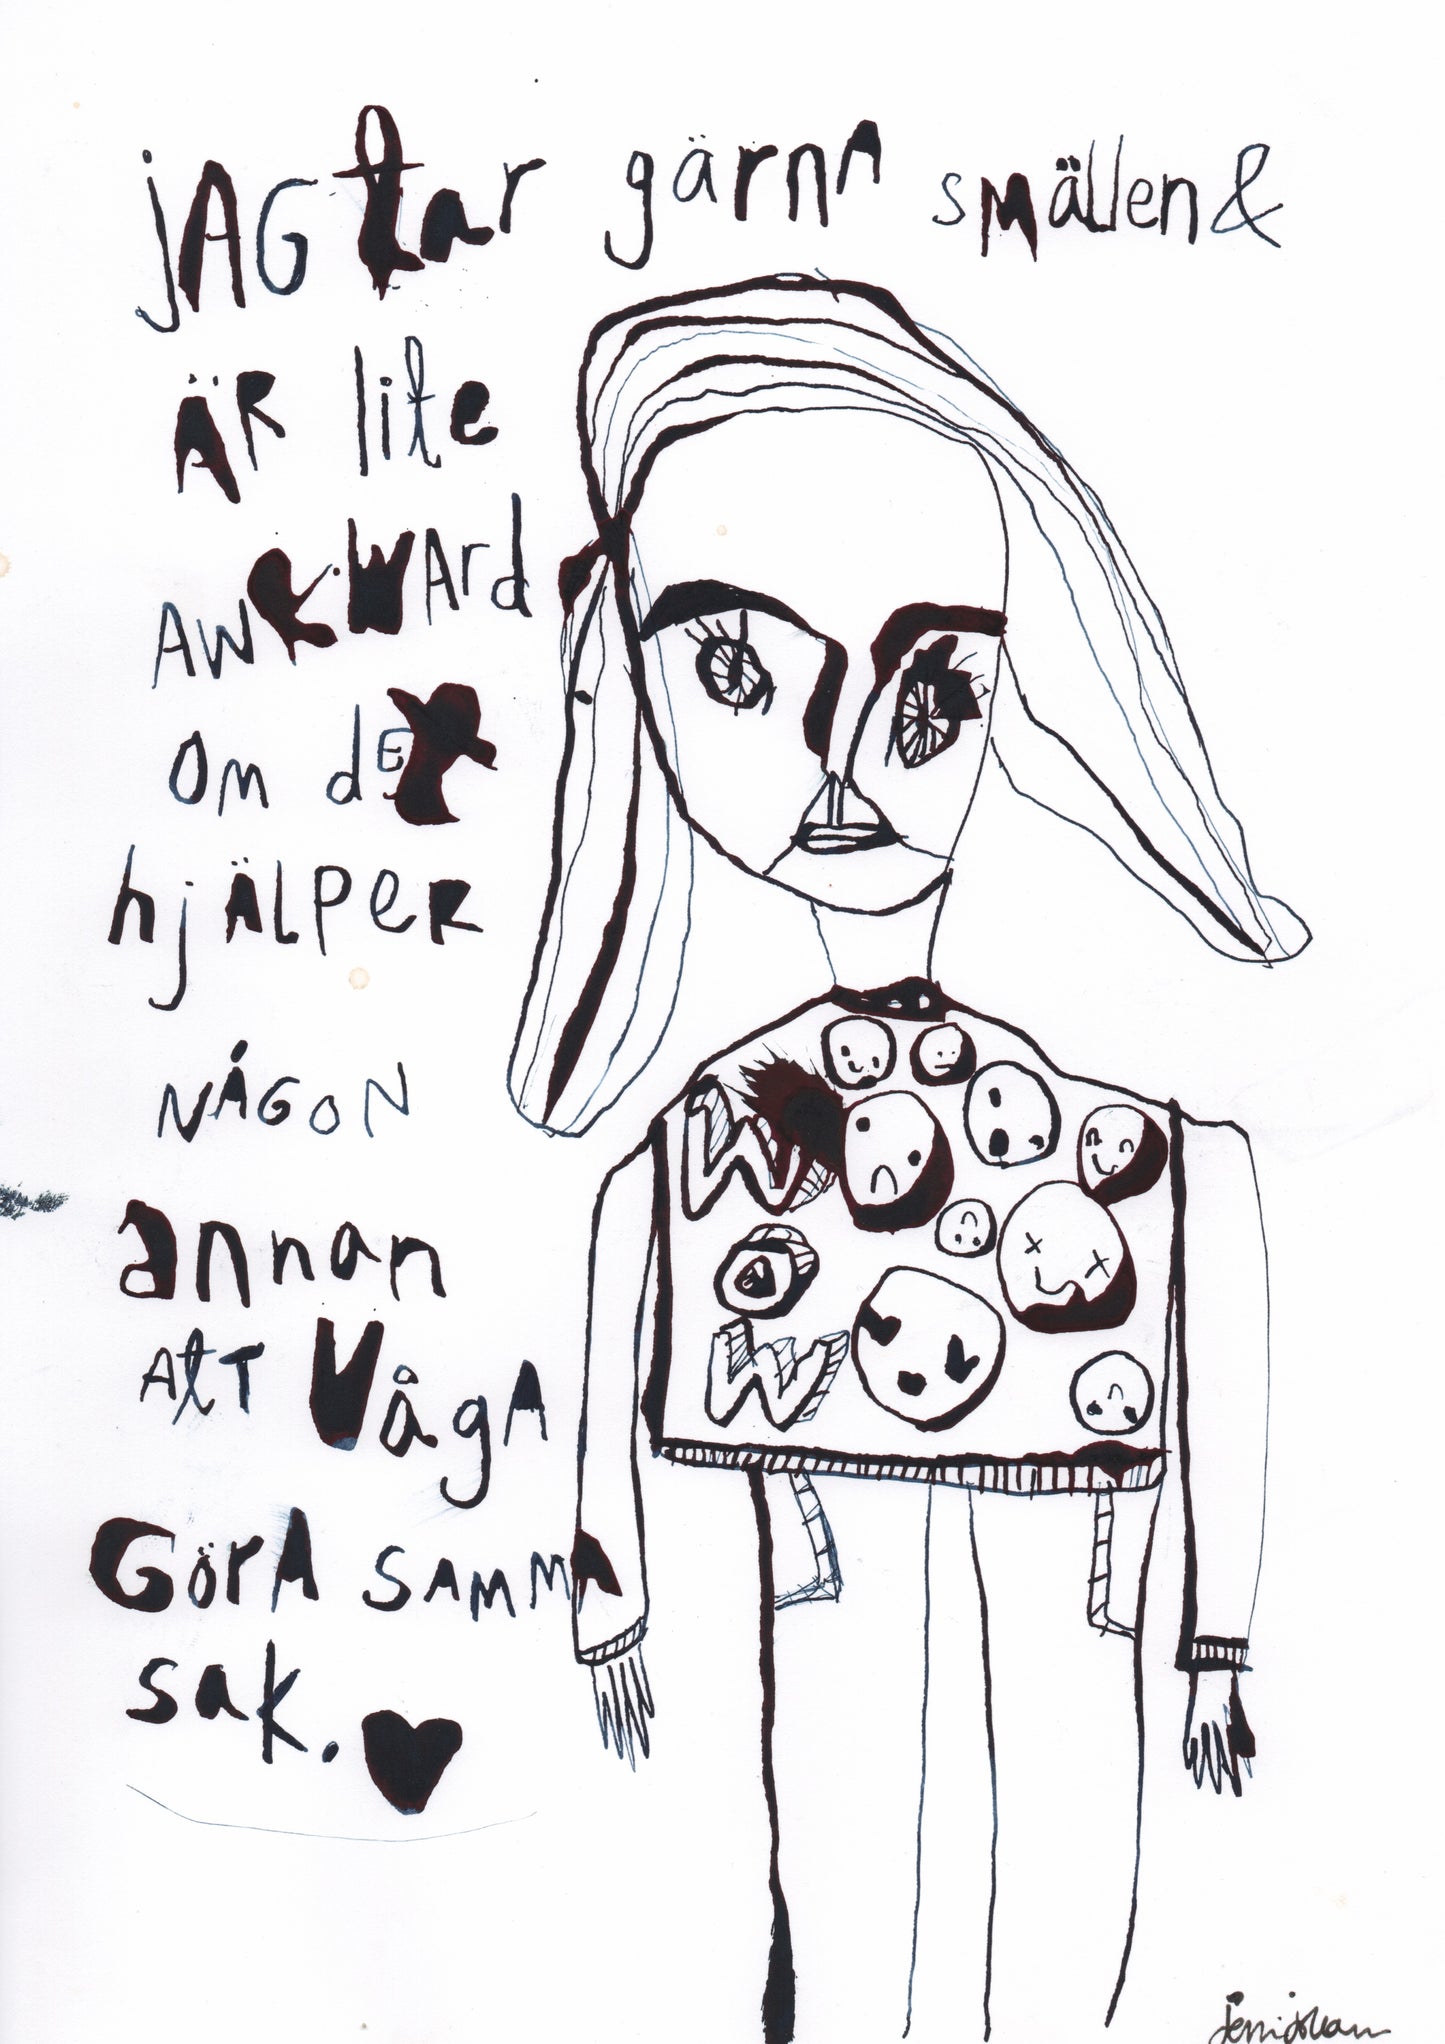 jAG tar gärnA smällen &
ÄR lite
AWKWArd
Om dET
hjÄLPeR
NÅGON
annan
AttT VågA
GörA SAMMA
sak.
WOW